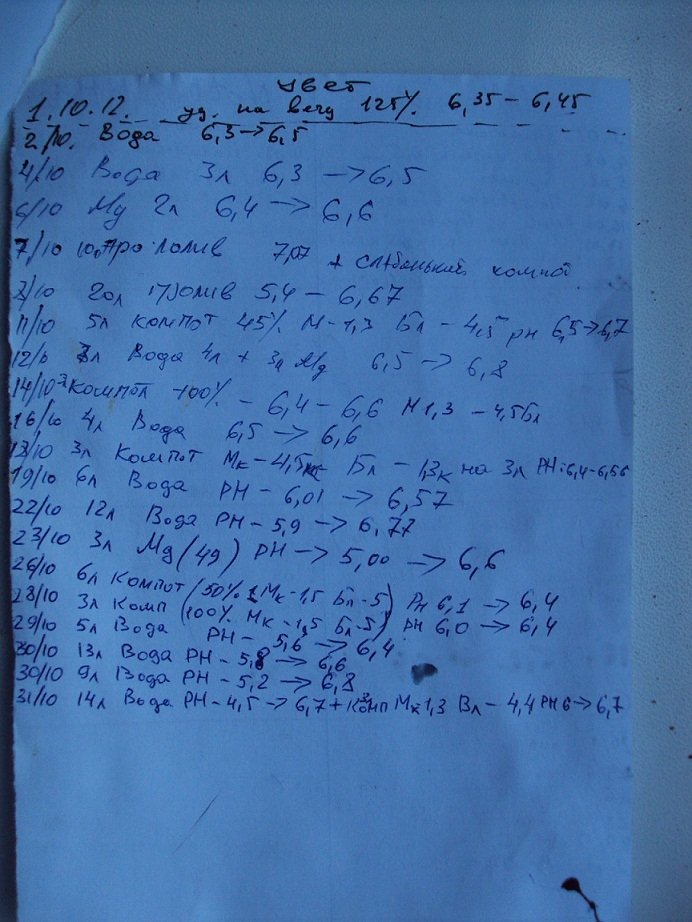 цвет
1.10.12. уд. на вегу 125% 6,35 – 6,45
2/10. Вода 6,3 → 6,5
4/10 Вода 3л 6,3 → 6,5
6/10 Mg 2л 6,4 → 6,6
7/10 пролив 7,07 + слабенький компот
20л пролив 5,4 – 6,67
11/10 5л компот 45% М-1,3 Бл – 4,5 PH 6,5 → 6,7
Вода 4л + 3л Mg 6,5 → 6,8
14/10 компот 100% – 6,4 – 6,6 М1,3 – 4,5Бл
16/10 4л Вода 6,5 → 6,6
18/10 3л компот Мк – 4,5 Бл – 1,3к на 3л PH-6,4-6,56
19/10 6л Вода PH – 6,01 → 6,57
22/10 12л Вода PH – 5,9 → 6,77
23/10 3л Mg (49) PH → 5,00 → 6,6
26/10 6л Компот (50% Мк-1,5 Бл-5) PH 6,1 → 6,4
28/10 3л Комп (100% Мк-1,5 Бл-5) PH 6,0 → 6,4
29/10 5л Вода PH – 5,6 → 6,4
30/10 13л Вода PH – 5,8 → 6,6
30/10 9л Вода PH – 5,2 → 6,8
31/10 14л Вода PH – 4,5 → 6,7 + Комп Мк 1,3 Бл – 4,4 PH 6 → 6,7